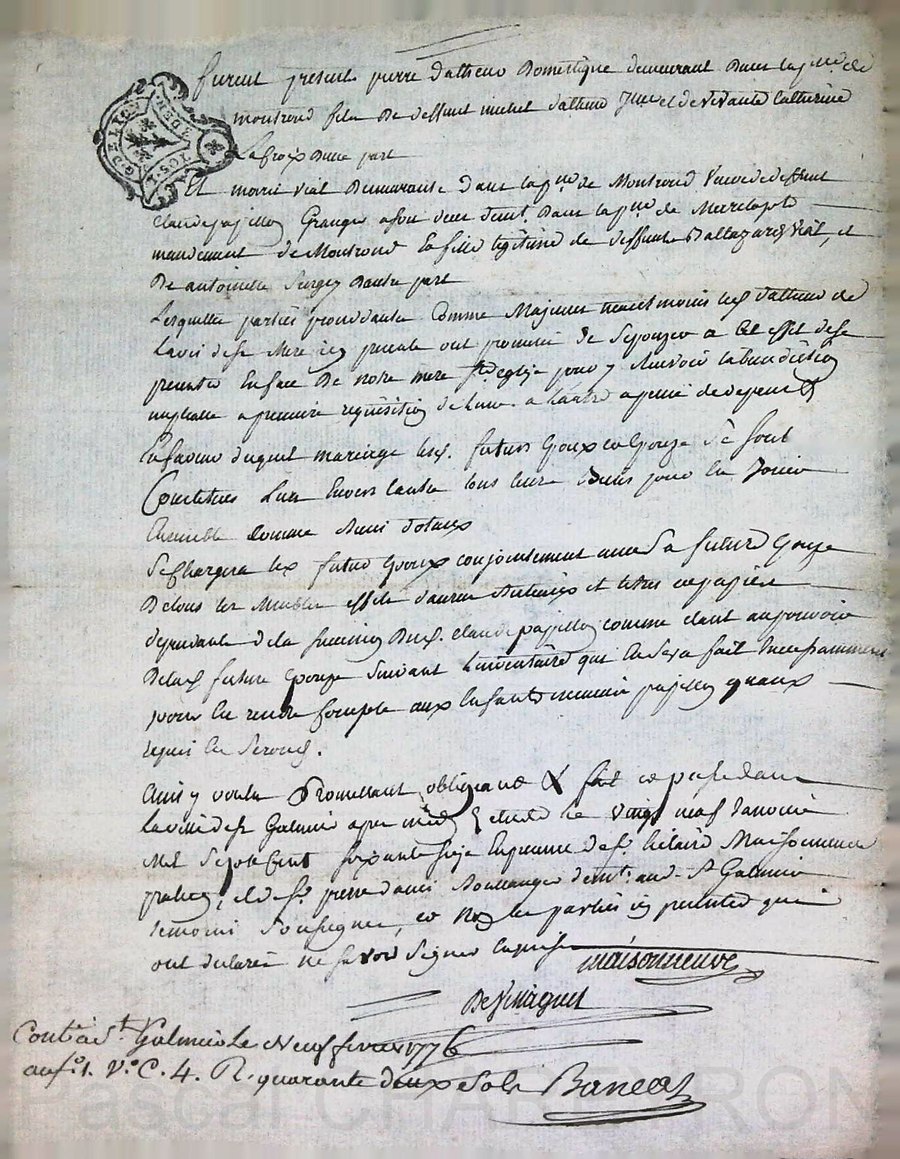 furent presents pierre dattieu Domestique demeurant Dans la p.sse de
montrond fils De deffunt michel dattieu et de vivante Catherine
La froix Dune part
Et marie vial Demeurante Dans la p.sse de Montrond veuve de deffunt
claude papillon Granger Dans la p.sse de
mandement de Montrond la fille legitime de deffunt Baltazard vial, et
De antoinette Dautre part
Lesquelles parties procedantes comme Majeures neantmoins led. dattieu de
Lavis de sa Mere icy presente ont promis de Sepouser a Cet effet de se
presenter Enface De notre mere S.te eglise pour y Recevoir la benediction
nuptialle a premiere requisition de Lun a Lautre a peine de depens &
En faveur duquel mariage lesd. futurs Epoux et Epouse Se sont
Constitues Lun Envers Lautre tous leurs Droits pour En Jouir
Ensemble comme Biens dotaux
Se Chargera led. futur Epoux conjointement avec Sa future Epouse
De tous les Meubles effets danrees Bestiaux et titres et papiers
dependants de la succession Dud. claude papillon comme etant au pouvoir
De lad. future Epouse Suivant Linventaire qui En Sera fait Incessamment
pour En rendre Compte aux Enfants mineurs papillon quand
requis En Seront.
Ainsy voulu Promettant obligeant & fait et passé dans
La ville de S.t Galmier apres midy Le vingt neuf Janvier
Mil Sept Cent soixante seize En presence de S.r hilaire Maisonneuve
praticien, et de S.r pierre Boullanger demt. aud. St Galmier
temoins Soussignes, et Non les parties icy presentes qui
ont declaré ne savoir Signer
maisonneuve
Contlé a St. Galmier Le Neuf fevrier 1776
au f.o 1. V.o C. 4. R. quarante deux Sols
Pascal CHAREYRON